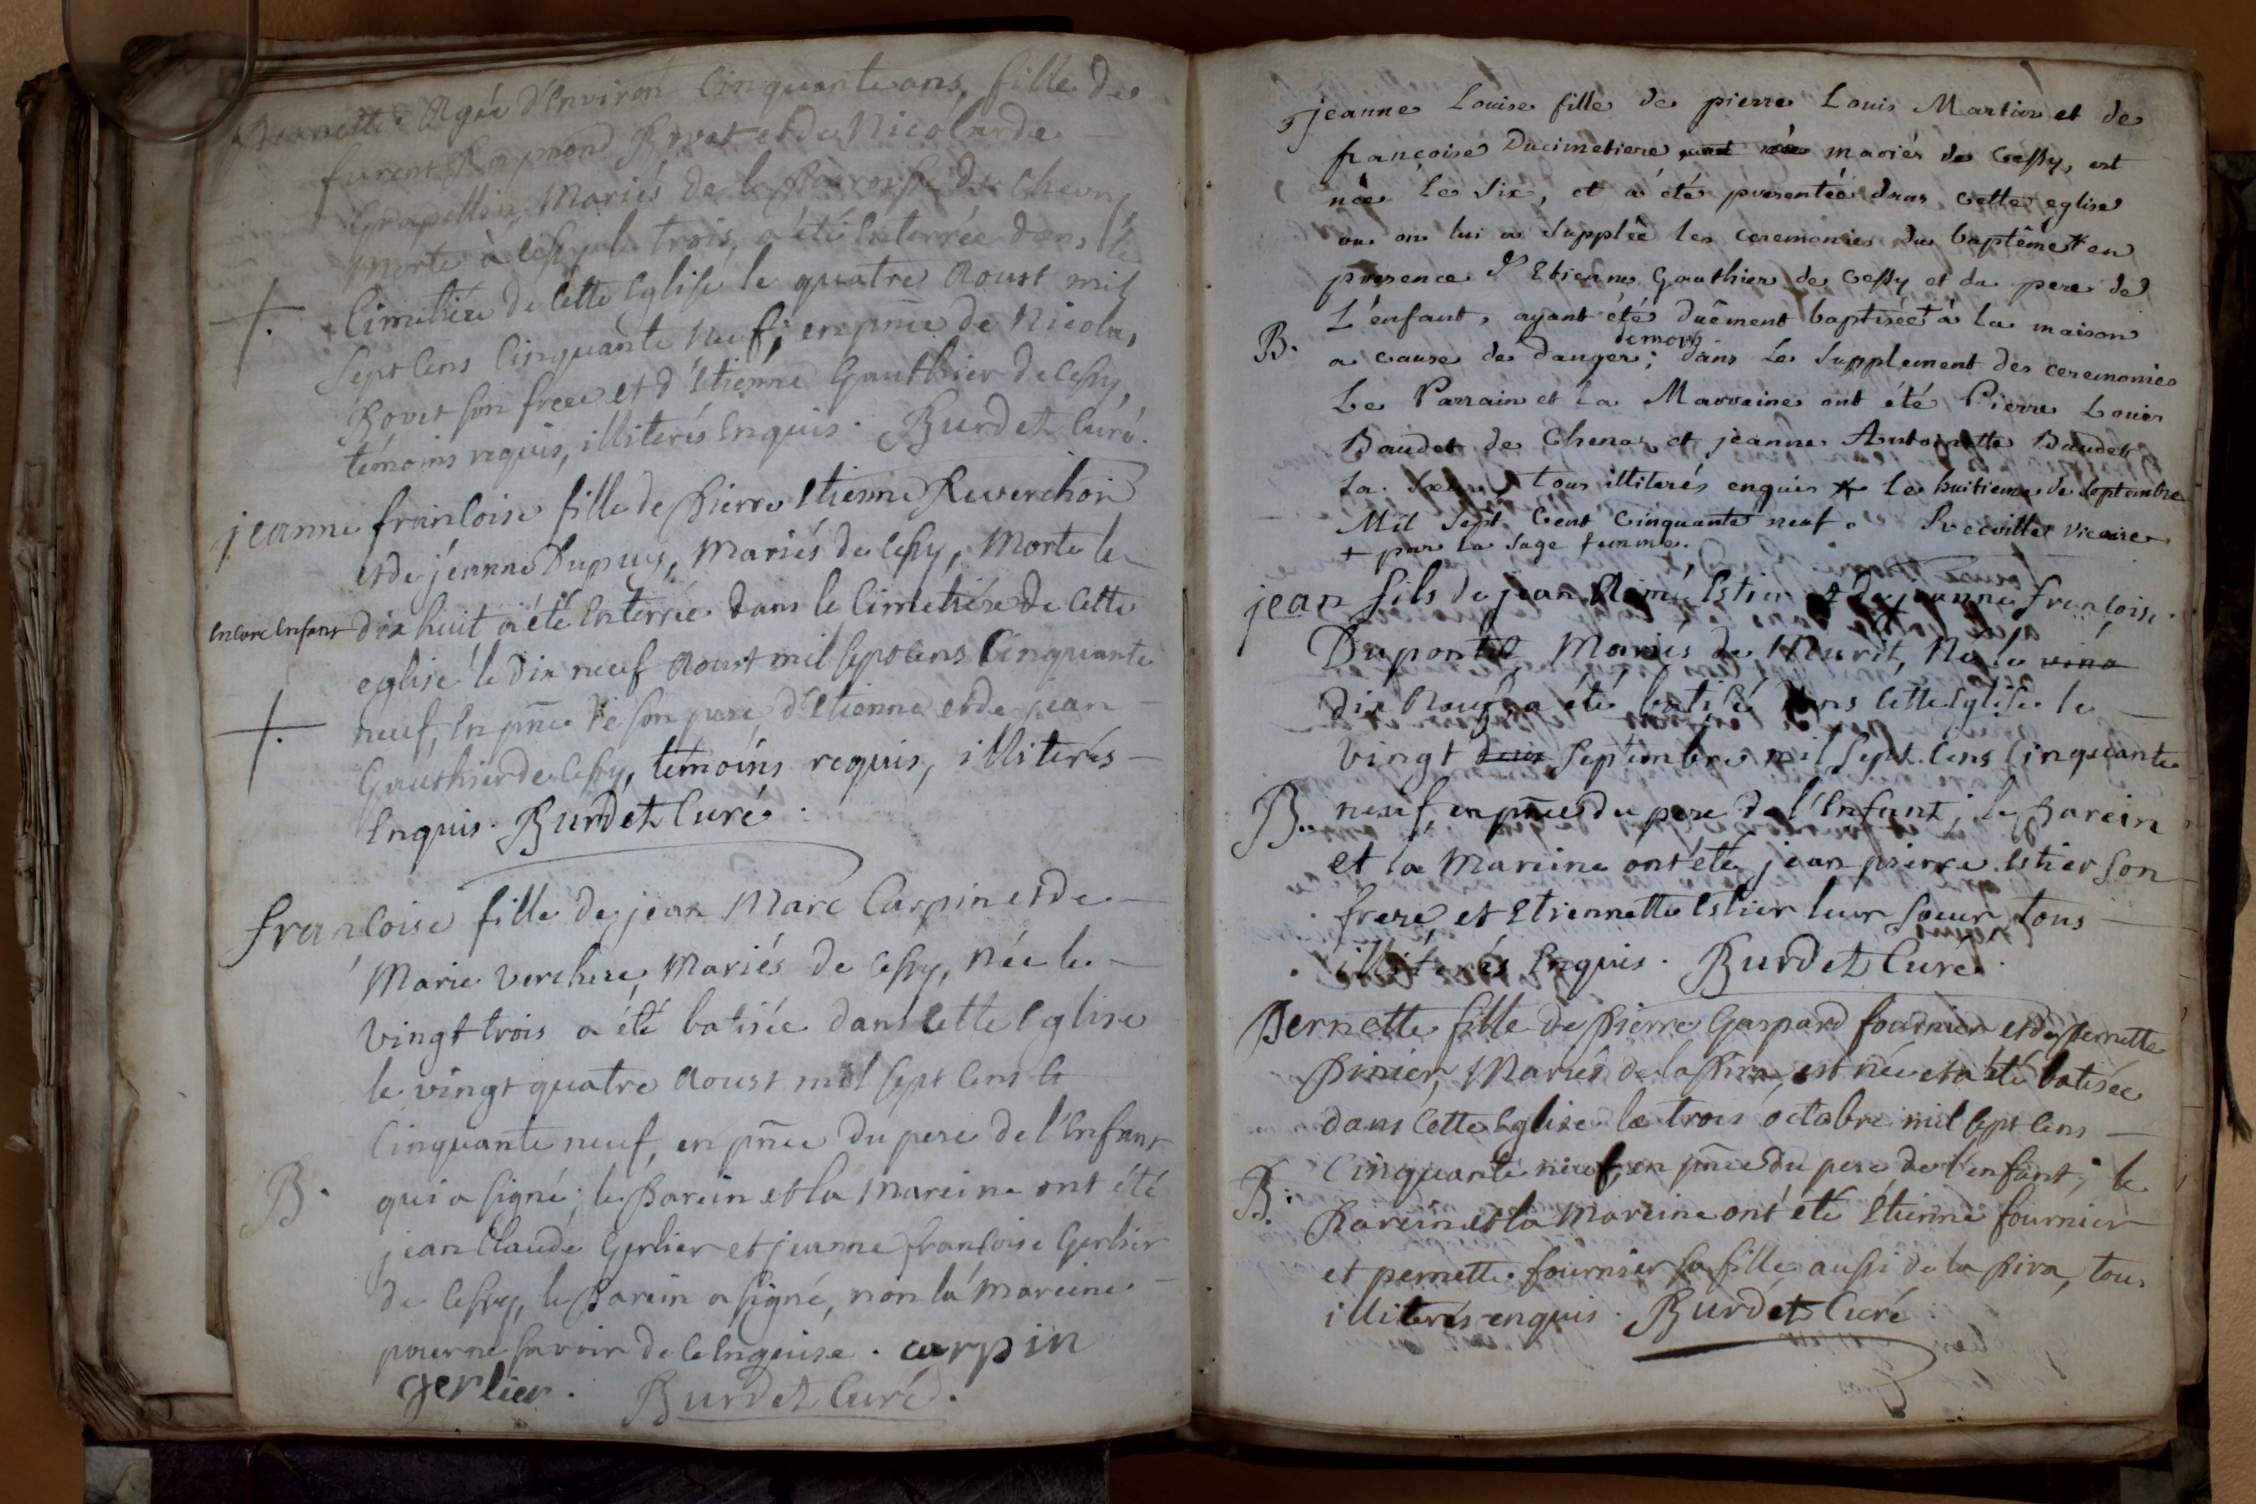 Pernette Agée d'Environ Cinquante ans, fille de
furent Raymond Rovet et de Nicolarde
Chapellen, Mariés de la Parroisse de Chevry,
Morte à Cessy le trois, a été Enterrée dans le
+. Cimetiére de Cette Eglise le quatre Aoust mil
Sept Cens Cinquante Neuf; en pñce de Nicolas
Rovet son frere et d'Etienne Gauthier de Cessy,
témoins requis, illiterés Enquis. Burdet Curé.
jeanne françoise fille de Pierre Etienne Reverchon
et de jéanne Dupuis, Mariés de Cessy, Morte le
Encore Enfant dix huit a été Enterrée dans le Cimetiére de Cette
eglise le Dix neuf Aoust mil Sept Cens Cinquante
+. neuf, En pñce de son pere, d'Etienne et de jean
Gauthier de Cessy, temoins requis, illiterés
Enquis. Burdet Curé.
françoise fille de jean Marc Carpin et de
Marie Verchere, Mariés de Cessy, Née le
vingt trois a été batisée dans Cette Eglise
le vingt quatre Aoust mil Sept Cens et
Cinquante neuf, en pñce du pere de l'Enfant
B. qui a signé; le Parein et la Mareine ont été
jean Claude Gerlier et jeanne françoise Gerlier
de Cessy, le Parein a signé, non la Mareine
pour ne savoir de Ce Enquise. carpin
gerlier. Burdet Curé.
jeanne Louise fille de pierre Louis Martin et de
françoise Ducimetiere mariés de Cessy, est
née le Six, et a été presentée dans cette eglise
ou on lui a Supplée les ceremonies du baptême en
presence d'Etienne Gauthier de Cessy et du pere de
L'enfant, ayant été dûëment baptisée + à la maison
de mort
B. a cause de danger; dans le Supplement des ceremonies
Le Parrain et la Marraine ont été Pierre Louis
Baudet de Chenaz et jeanne Antoinette Baudet
Sa Sœur, tous illiterés enquis le huitieme de Septembre
Mil Sept Cent Cinquante neuf. Vicaire
+ par la Sage femme.
jean fils de jean Aimé Estier et de jeanne françoise
Dupontet, Mariés de Murit, Né le vins
dix Neuf, a été batisé dans Cette Eglise le
vingt deux Septembre mil Sept Cens Cinquante
B. neuf, en pñce du pere de l'Enfant; le Parein
et la Mareine ont été jean pierre Estier son
frere, et Etiennette Estier leur soeur, tous
illiterés Enquis. Burdet Curé.
Pernette fille de Pierre Gaspard fournier et de pernette
Pinier, Mariés de la Pira, est née et a été batisée
dans Cette Eglise le trois octobre mil Sept Cens
Cinquante neuf, en pñce du pere de l'enfant; le
B. Parein et la Mareine ont été Etienne fournier
et pernette fournier sa fille aussi de la Pira, tous
illiterés enquis. Burdet Curé